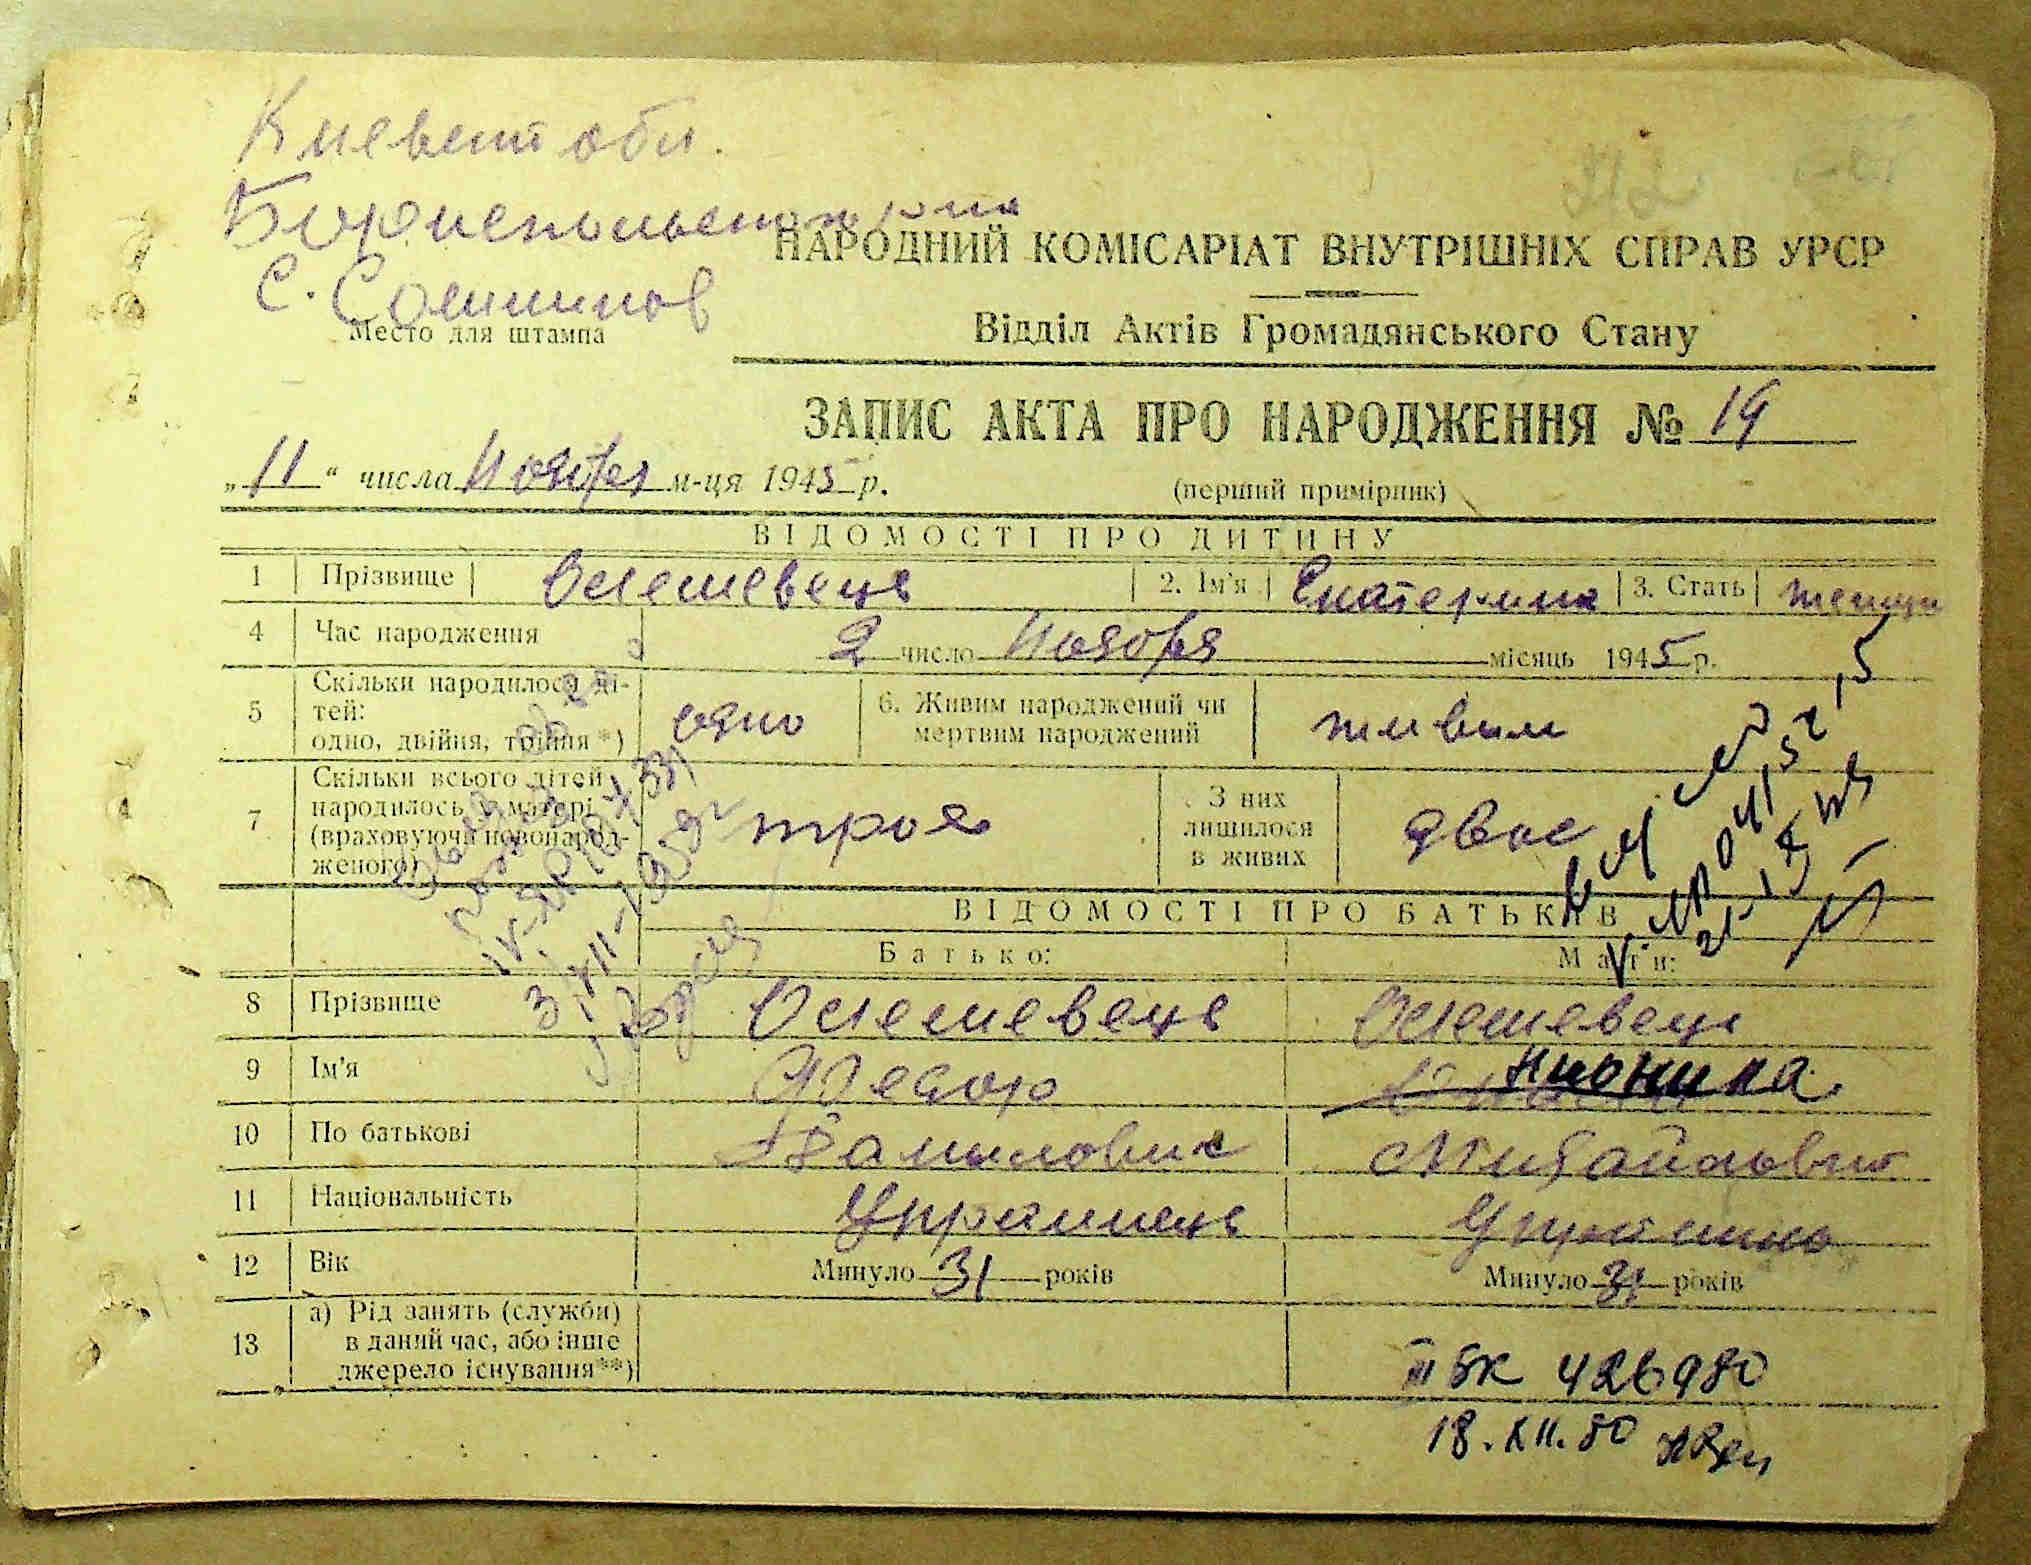 Киевской обл.
Бориспольского р-на
с. Сошников
Место для штампа
НАРОДНИЙ КОМІСАРІАТ ВНУТРІШНІХ СПРАВ УРСР
Відділ Актів Громадянського Стану
ЗАПИС АКТА ПРО НАРОДЖЕННЯ № 19
„11“ числа Ноября м-ця 1945 р.
(перший примірник)
ВІДОМОСТІ ПРО ДИТИНУ
1 Прізвище Олешевець 2. Ім'я Екатерина 3. Стать женщи
4 Час народження 2 число Ноября місяць 1945 р.
5 Скільки народилося ді-
тей:
одно, двійня, трійня *) одно 6. Живим народжений чи
мертвим народжений живим
7 Скільки всього дітей
народилось у матері
(враховуючи новонарод-
женого) троя З них
лишилося
в живих двое
ВІДОМОСТІ ПРО БАТЬКІВ
Батько: Мати:
8 Прізвище Олешевець Олешевець
9 Ім'я Федор
10 По батькові Данилович Михайловна
11 Національність Украинець Украинка
12 Вік Минуло 31 років Минуло 31 років
13 а) Рід занять (служби)
в даний час, або інше
джерело існування**)
III БК 426980
18.XII.80